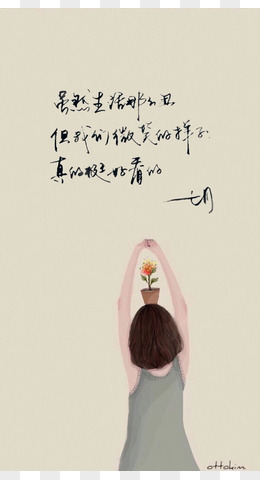 虽然生活那么丑
但我们微笑的样子
真的挺好看的
——七月
ottokim